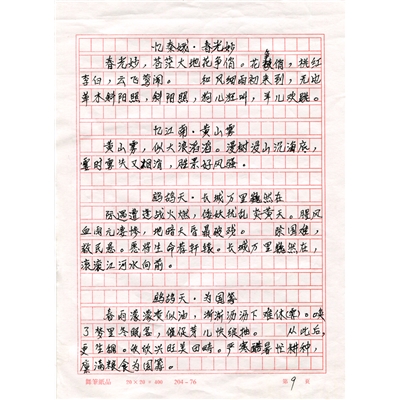 忆秦娥·春光妙
春光妙，苍茫大地花争俏。花争俏，桃红
李白，云飞莺闹。 和风细雨初来到，无边
草木斜阳照，斜阳照，狗儿狂叫，羊儿欢跳。
忆江南·黄山雾
黄山雾，似大浪滔滔。漫树漫山沉海底，
霎时雾失又相消，胜景好风骚。
鹧鸪天·长城万里巍然在
际遇遭逢战火燃，倭伏扰乱炎黄天。腥风
血雨元凄惨，地暗天昏最破残。 除国难，
救民忍。悉将生命看轩缘。长城万里巍然在，
滚滚江河水向前。
鹧鸪天·为国筹
春雨滚滚黄似油，渐渐沥沥下难休(需)。唤
了努里冬眠客，催促芽儿快缀抽。 从此后，
更生稠。欣欣兴旺美田畴。严寒酷暑忙耕种，
廪满粮食为国筹。
舞笔纸品 20×20＝400 204-76 第 9 页